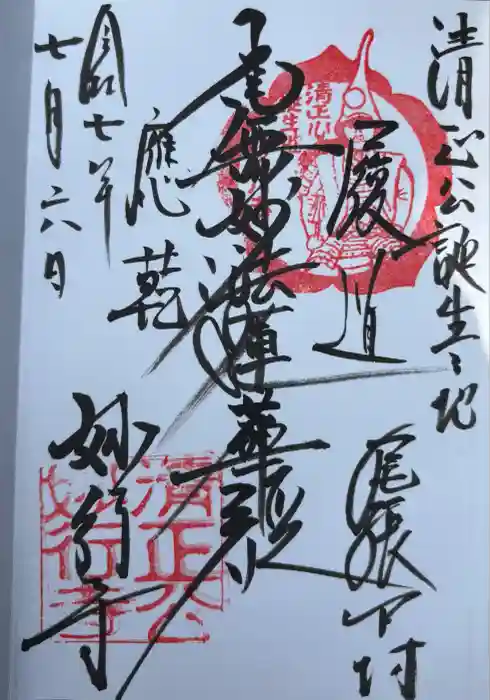 清正公誕生之地
履道
尾張中村
南無妙法蓮華経
應乾
妙行寺
令和七年
七月六日
清正公
妙行寺